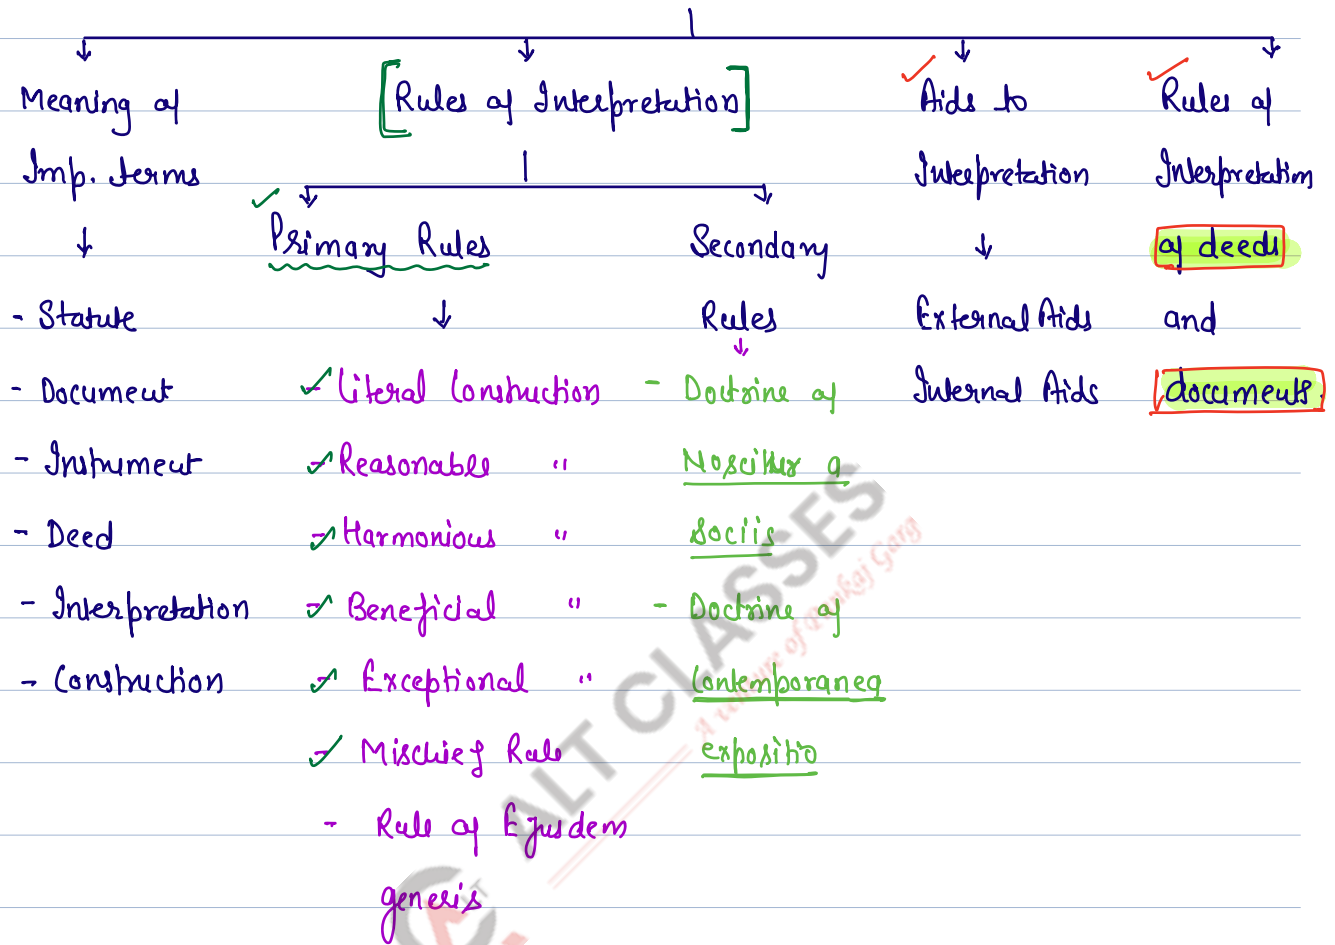 Meaning of
Imp. terms
- Statute
- Document
- Instrument
- Deed
- Interpretation
- Construction
[Rules of Interpretation]
Primary Rules
- Literal Construction
- Reasonable "
- Harmonious "
- Beneficial "
- Exceptional "
- Mischief Rule
- Rule of Ejusdem
generis
Secondary
Rules
- Doctrine of
Noscitur a
Sociis
- Doctrine of
Contemporanea
expositio
Aids to
Interpretation
External Aids
Internal Aids
Rules of
Interpretation
of deeds
and
documents.
ALT CLASSES
A venture of Pankaj Garg